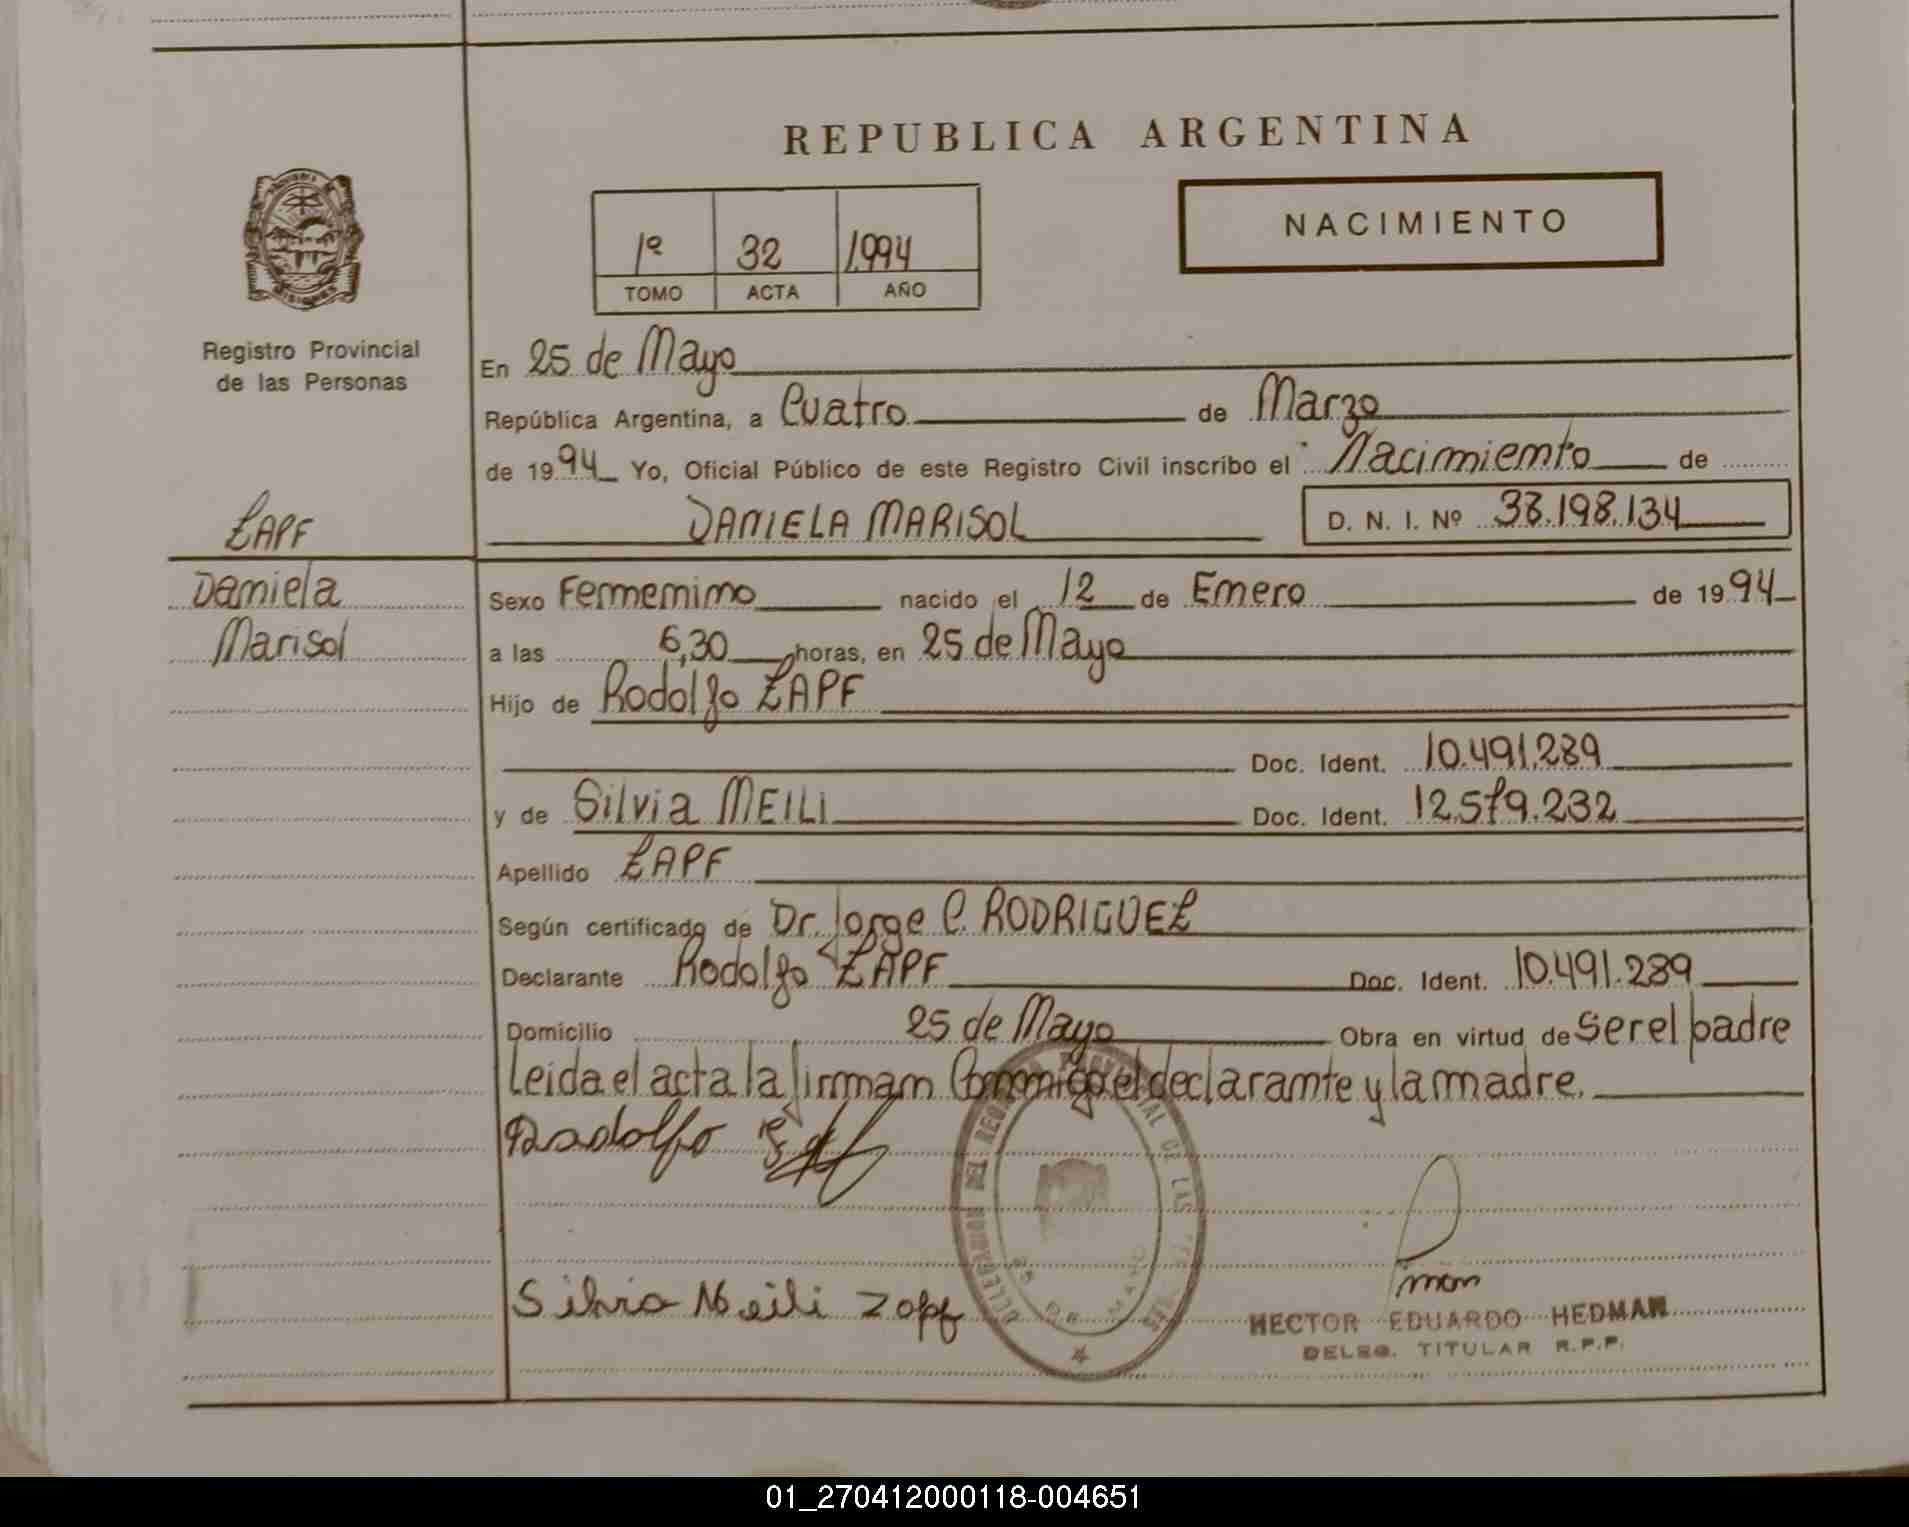 REPUBLICA ARGENTINA
NACIMIENTO
1º 32 1.994
TOMO ACTA AÑO
MISIONES
Registro Provincial
de las Personas
En 25 de Mayo
República Argentina, a Cuatro de Marzo
de 1994 Yo, Oficial Público de este Registro Civil inscribo el Nacimiento de
DANIELA MARISOL D. N. I. Nº 38.198.134
ZAPF
Daniela
Marisol
Sexo Fermemimo nacido el 12 de Enero de 1994
a las 6,30 horas, en 25 de Mayo
Hijo de Rodolfo ZAPF
Doc. Ident. 10.491.289
y de Silvia MEILI Doc. Ident. 12.579.232
Apellido ZAPF
Según certificado de Dr. Jorge C. RODRIGUEZ
Declarante Rodolfo ZAPF Doc. Ident. 10.491.289
Domicilio 25 de Mayo Obra en virtud de Ser el padre
Leida el acta la firman Conmigo el declarante y la madre.
Rodolfo
DELEGACION DEL REGISTRO PROVINCIAL DE LAS
25 DE MAYO
Silvia Meili Zapf
HECTOR EDUARDO HEDMAN
DELEG. TITULAR R.P.P.
01_270412000118-004651